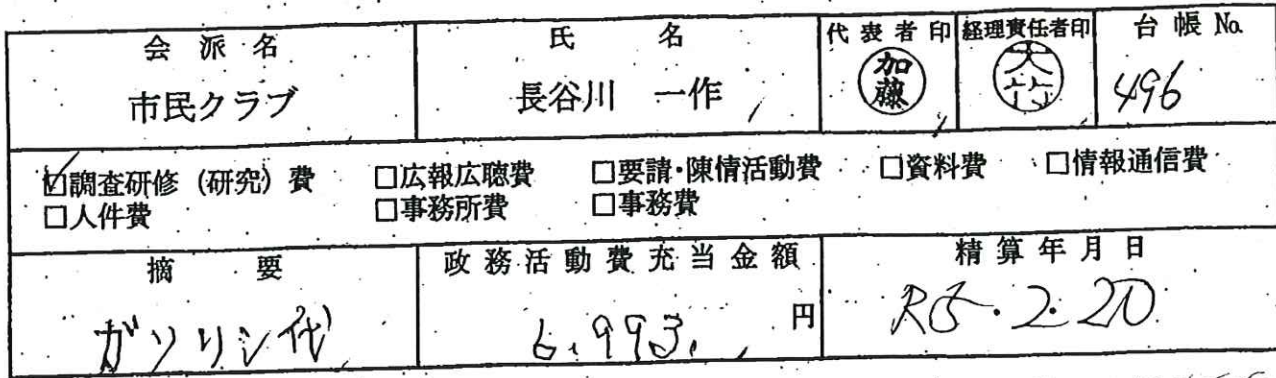 会派名 氏名 代表者印 経理責任者印 台帳No.
市民クラブ 長谷川 一作 加藤 大竹 496
☑調査研修（研究）費 □広報広聴費 □要請・陳情活動費 □資料費 □情報通信費
□人件費 □事務所費 □事務費
摘要 政務活動費充当金額 精算年月日
ガソリン代 6,993. 円 R5.2.20